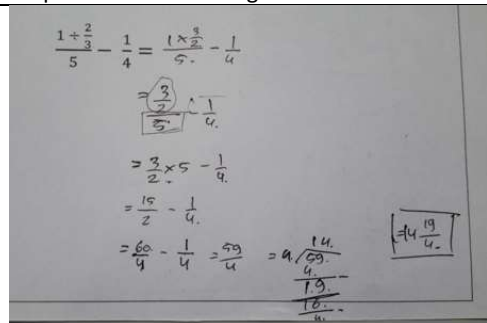 (1 ÷ 2/3)/5 − 1/4 = (1 × 3/2)/5. − 1/4
= (3/2)/5 − 1/4.
= 3/2 × 5 − 1/4.
= 15/2 − 1/4.
= 60/4 − 1/4 = 59/4 = 4./59.
14.
4. −
19.
16. −
4.
=14 19/4.